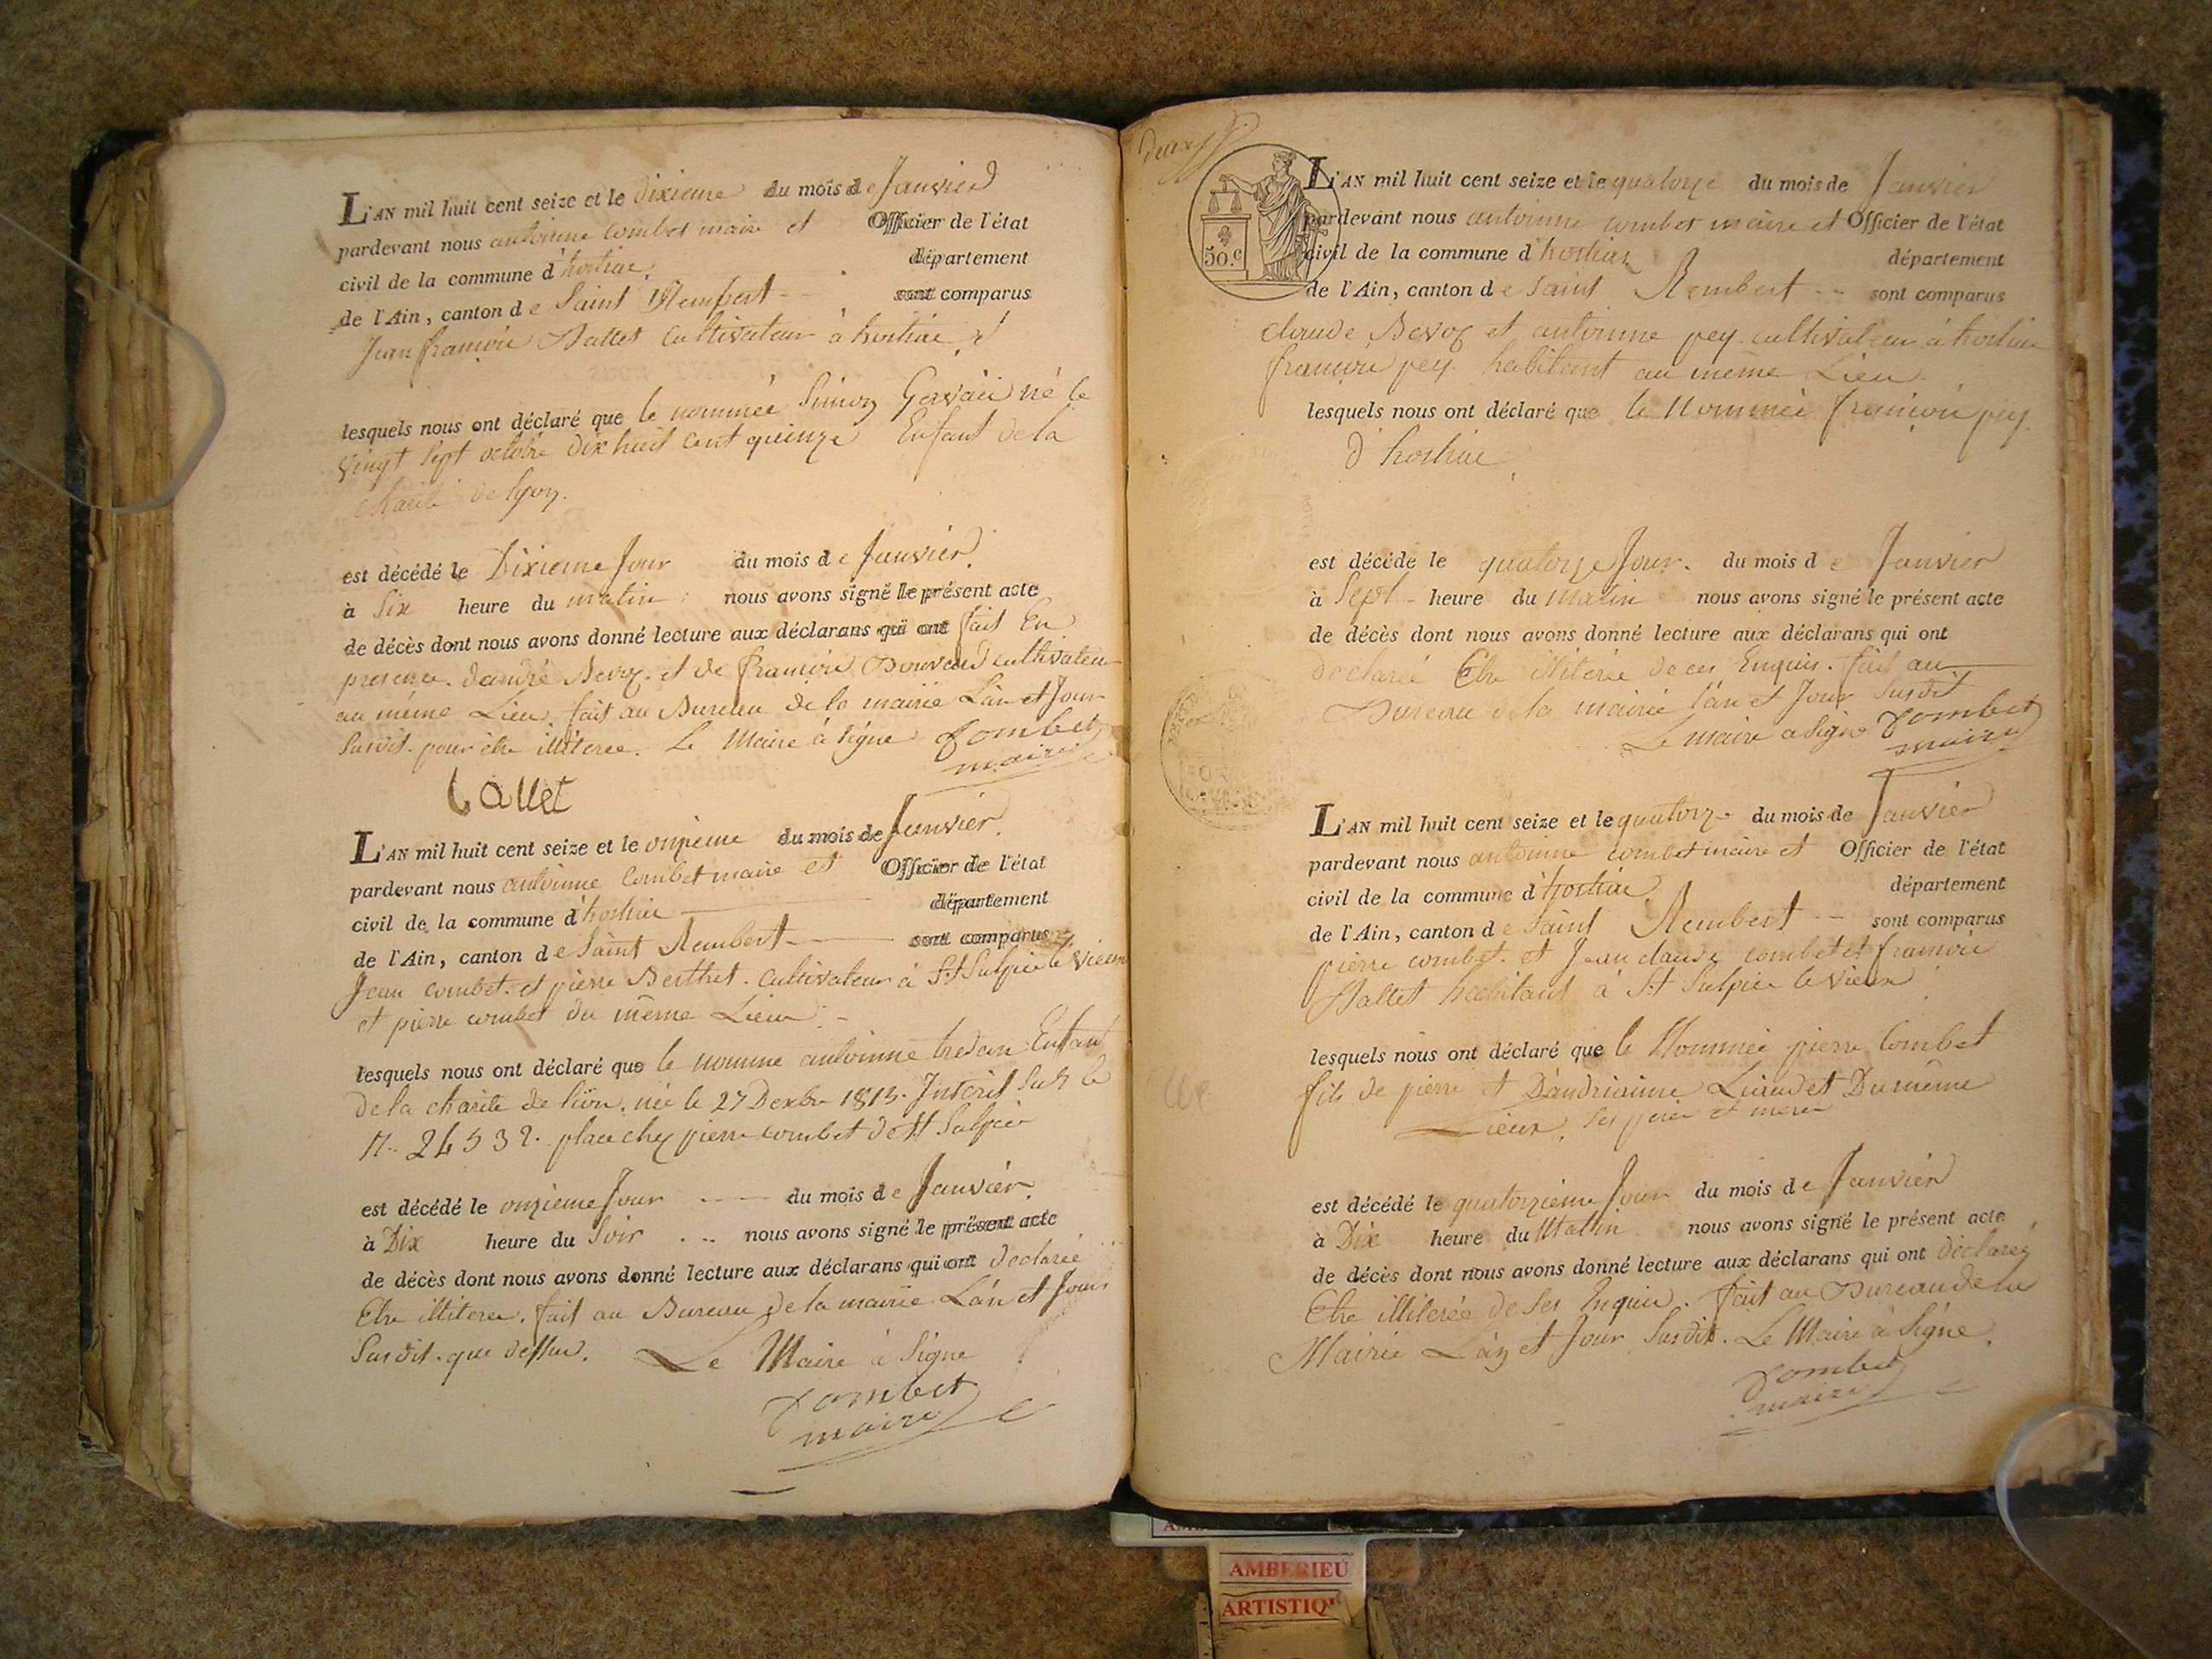 L'AN mil huit cent seize et le dixieme du mois de Janvier
pardevant nous antoinne combet maire et Officier de l'état
civil de la commune d'hostiac département
de l'Ain, canton de Saint Rembert sont comparus
Jean francois Ballet cultivateur à hostiac
lesquels nous ont déclaré que le nommée Simon Gervais né le
vingt Sept octobre dix huit cent quinze Enfant de la
charité de lyon.
est décédé le Dixieme Jour du mois de Janvier.
à Six heure du matin nous avons signé le présent acte
de décès dont nous avons donné lecture aux déclarans qui ont fait En
presence d'andré Bevoz et de francois cultivateur
au même Lieu. fait au Bureau de la mairie L'an et Jour
Susdit. pour être illiteree. Le Maire à Signe Combet
maire
Callet
L'AN mil huit cent seize et le onzieme du mois de Janvier.
pardevant nous antoinne Combet maire et Officier de l'état
civil de la commune d'hostiac département
de l'Ain, canton de Saint Rembert sont comparus
Jean combet. et pierre Berthet. cultivateur à St Sulpice le Vieux
et pierre combet du même Lieu
lesquels nous ont déclaré que le nomme antoinne tredan Enfant
de la charité de lion. née le 27 Dexbre 1815. Inscrit Sur le
N.. 24532. place chez pierre combet de St Sulpice
est décédé le onzieme Jour du mois de Janvier.
à Dix heure du Soir nous avons signé le présent acte
de décès dont nous avons donné lecture aux déclarans qui ont declarée
Etre illiteree. fait au Bureau de la mairie L'an et Jour
Susdit. que dessus. Le Maire à Signe
Combet
maire
deux
50.c
L'AN mil huit cent seize et le quatorze du mois de Janvier
pardevant nous antoinne combet maire et Officier de l'état
civil de la commune d'hostiaz département
de l'Ain, canton de Saint Rembert sont comparus
claude Bevoz et antoinne pey. cultivateur à hostiac
francois pey. habitant au même Lieu.
lesquels nous ont déclaré que le Nommée francois pey
d'hostiac
est décédé le quatorze Jour. du mois de Janvier
à Sept heure du Matin nous avons signé le présent acte
de décès dont nous avons donné lecture aux déclarans qui ont
declarée Etre illiterée de ces Enquis. fait au
Bureau de la mairie l'an et Jour Susdit
Le maire a Signe Combet
maire
L'AN mil huit cent seize et le quatorze du mois de Janvier
pardevant nous antoinne combet maire et Officier de l'état
civil de la commune d'hostiac département
de l'Ain, canton de Saint Rembert sont comparus
pierre combet. et Jean claude combet et francois
Ballet habitant à St Sulpice le Vieux
lesquels nous ont déclaré que le Nommée pierre Combet
fils de pierre et D'andrianne du même
Lieux. Ses père et mere
est décédé le quatorzieme Jour du mois de Janvier
à Dix heure du Matin nous avons signé le présent acte
de décès dont nous avons donné lecture aux déclarans qui ont déclarée
Etre illiterée de Ses Enquis. fait au Bureau de la
Mairie L'an et Jour Susdit. Le Maire à Signe.
Combet
maire
AMBERIEU
ARTISTIQ